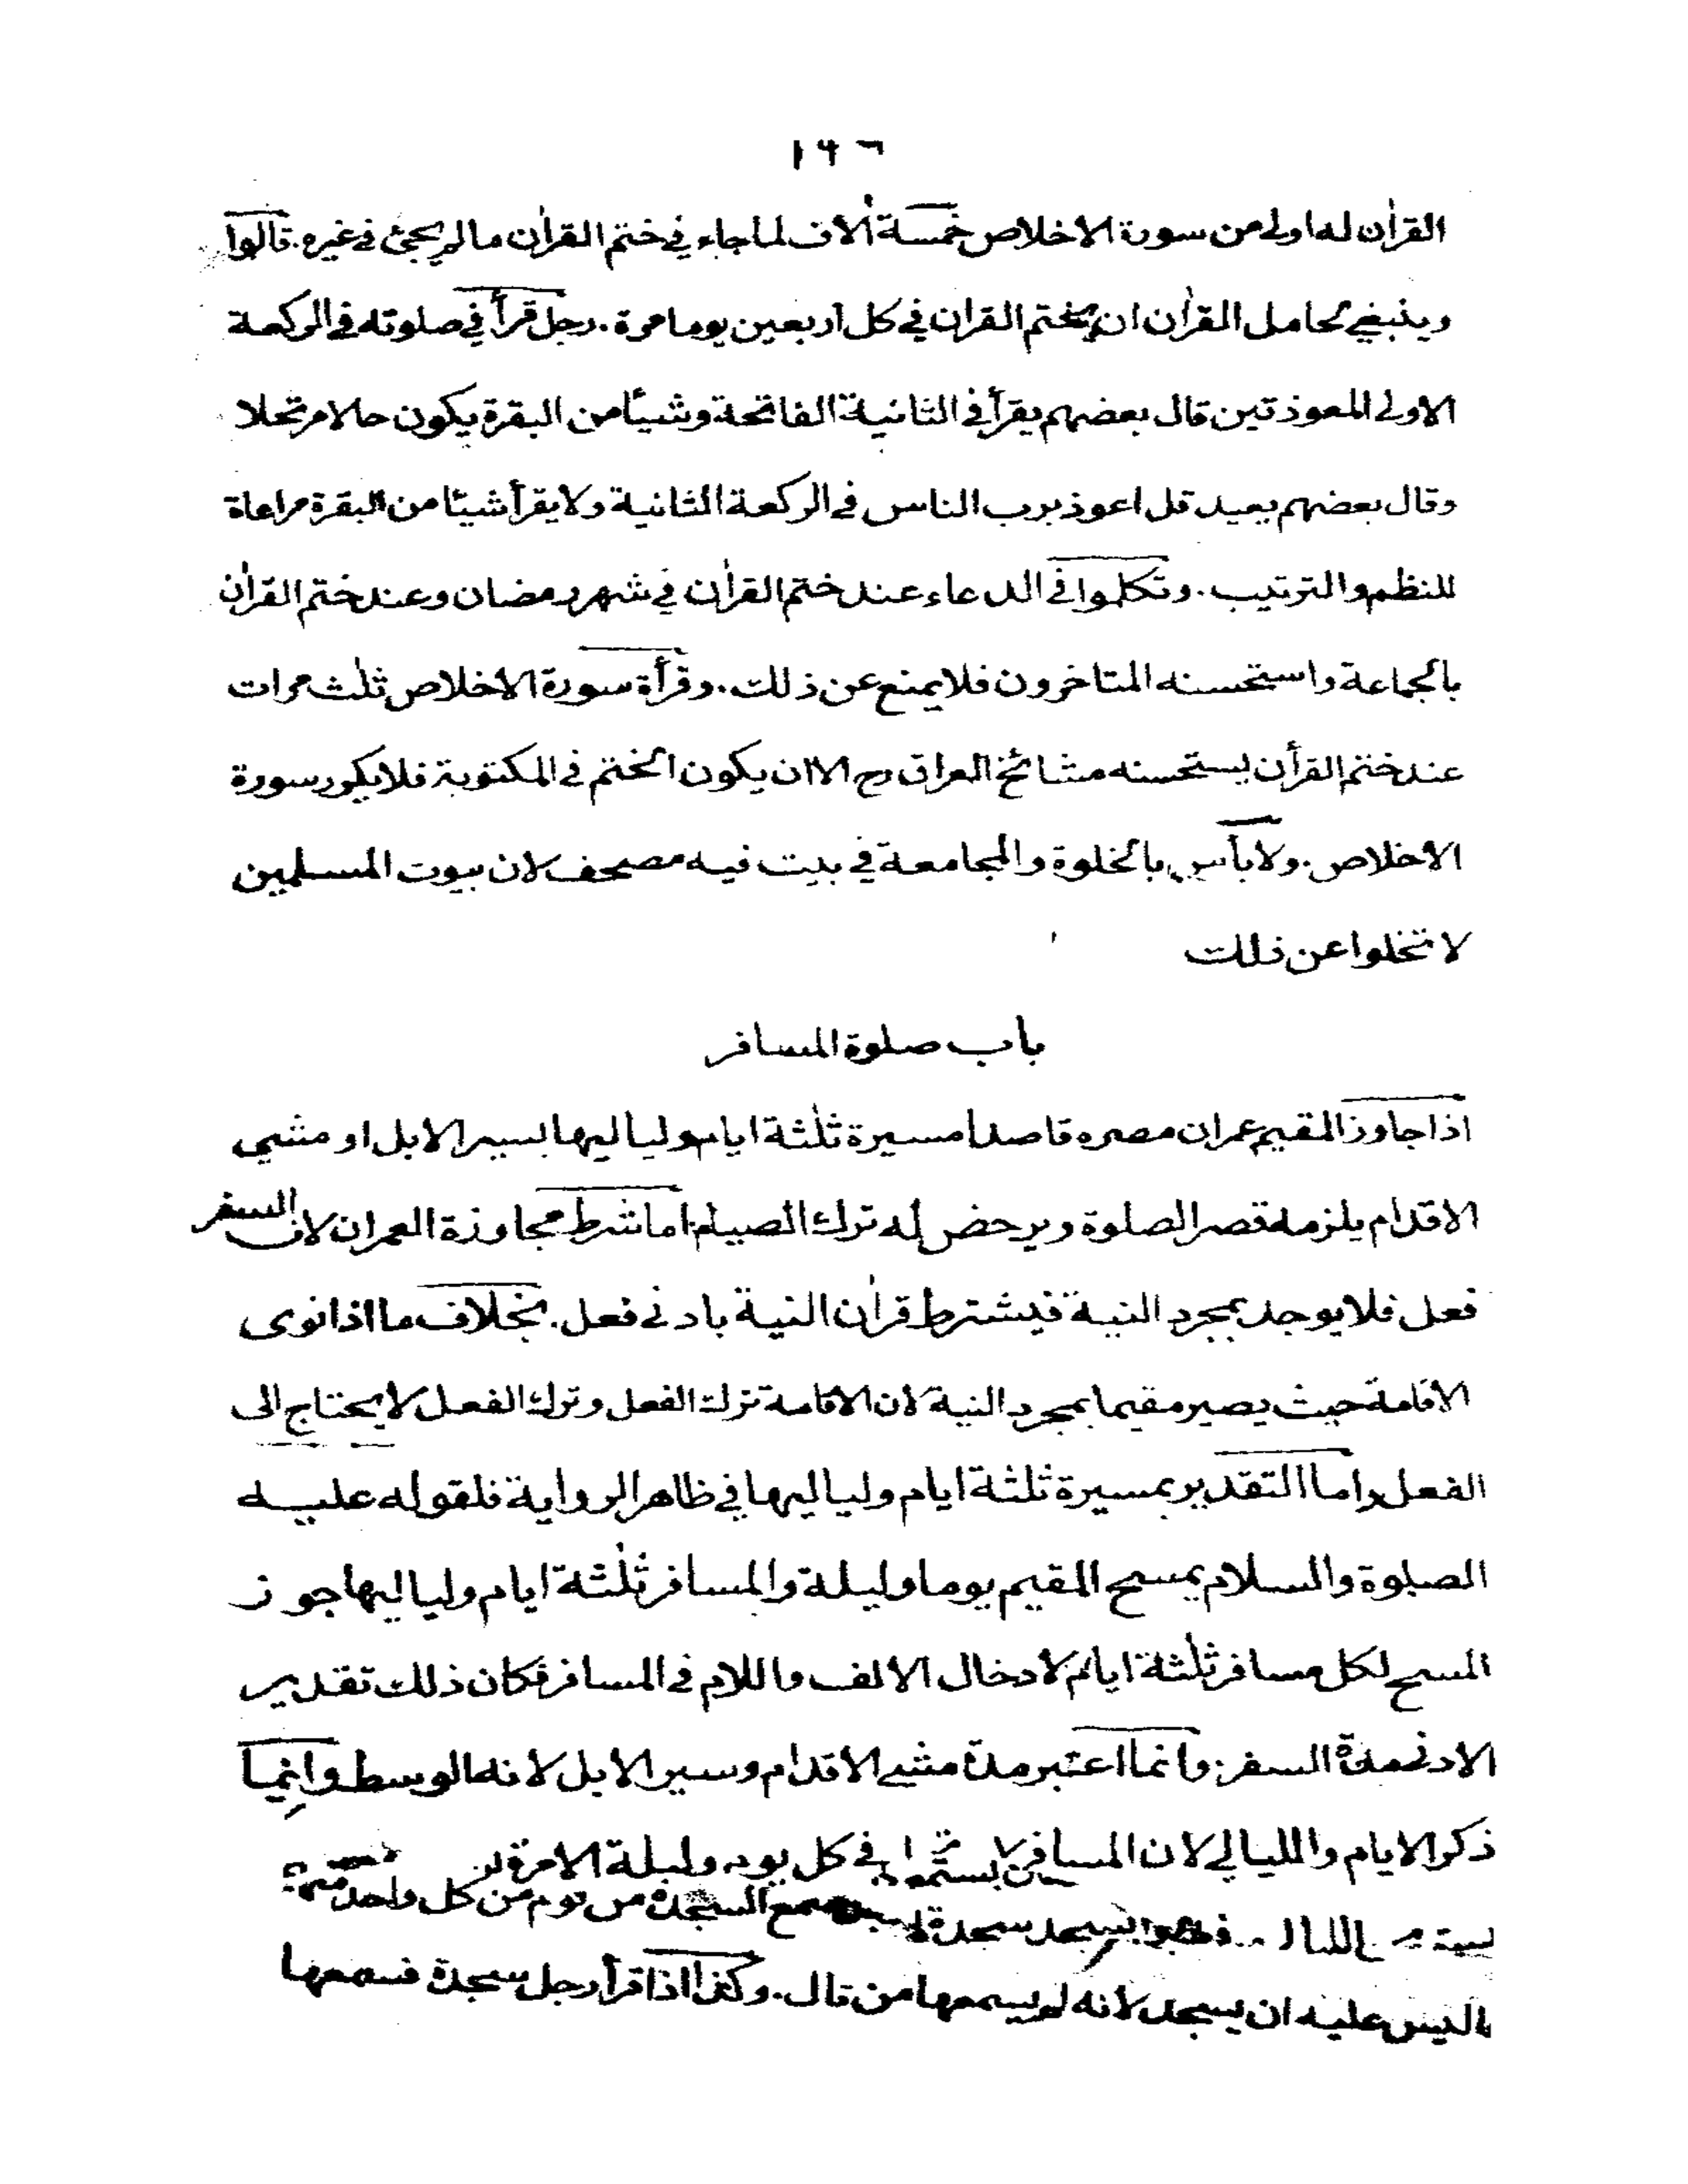 ١٩٦
القراٰن له اولى من سورة الاخلاص خمسة اٰلاف لما جاء في ختم القراٰن ما لم يجئ في غيره. قالوا
وينبغي لحامل القراٰن ان يختم القران في كل اربعين يوما مرة. رجل قرأ في صلوته في الركعة
الاولى المعوذتين قال بعضهم يقرأ في الثانية الفاتحة وشيئا من البقرة يكون حالا مرتحلا
وقال بعضهم يعيد قل اعوذ برب الناس في الركعة الثانية ولا يقرأ شيئا من البقرة مراعاة
للنظم والترتيب. وتكلموا في الدعاء عند ختم القراٰن في شهر رمضان وعند ختم القراٰن
بالجماعة واستحسنه المتاخرون فلا يمنع عن ذلك. وقرأة سورة الاخلاص ثلٰث مرات
عند ختم القرأن يستحسنه مشائخ العراق رح الا ان يكون الختم في المكتوبة فلا يكرر سورة
الاخلاص. ولا بأس بالخلوة والمجامعة في بيت فيه مصحف لان بيوت المسلمين
لا تخلوا عن ذلك
باب صلوة المسافر
اذا جاوز المقيم عمران مصره قاصدا مسيرة ثلٰثة ايام ولياليها بسير الابل او مشي
الاقدام يلزمه قصر الصلوة ويرخص له ترك الصيام اما شرط مجاوزة العمران لان السفر
فعل فلا يوجد بمجرد النية فيشترط قراٰن النية بادنى فعل. بخلاف ما اذا نوى
الاقامة حيث يصير مقيما بمجرد النية لان الاقامة ترك الفعل وترك الفعل لا يحتاج الى
الفعل واما التقدير بمسيرة ثلثة ايام ولياليها في ظاهر الرواية فلقوله عليه
الصلوة والسلام يمسح المقيم يوما وليلة والمسافر ثلٰثة ايام ولياليها جوز
المسح لكل مسافر ثلٰثة ايام لادخال الالف واللام في المسافر فكان ذلك تقدير
الادنى مدة السفر: وانما اعتبر مدة مشي الاقدام وسير الابل لانه الوسط وانما
ذكر الايام والليالي لان المسافر لا في كل يوم وليلة الا مرة
يسجد سجدة السجدة من قوم من كل واحد منهم
ليس عليه ان يسجد لانه لم يسمعها من تال. وكذا اذا قرأ رجل سجدة فسمعها